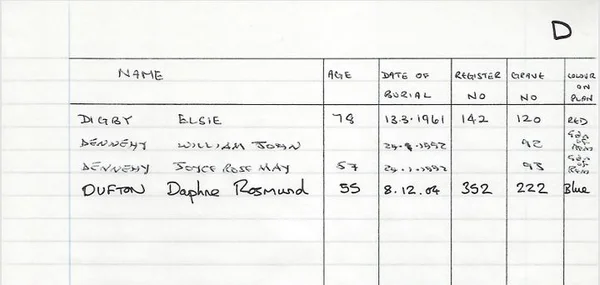 D
NAME AGE DATE OF BURIAL REGISTER NO GRAVE NO COLOUR ON PLAN
DIGBY ELSIE 78 13.3.1961 142 120 RED
DENNEHY WILLIAM JOHN 92
DENNEHY JOYCE ROSE MAY 57 93
DUFTON Daphne Rosmund 55 8.12.04 352 222 Blue